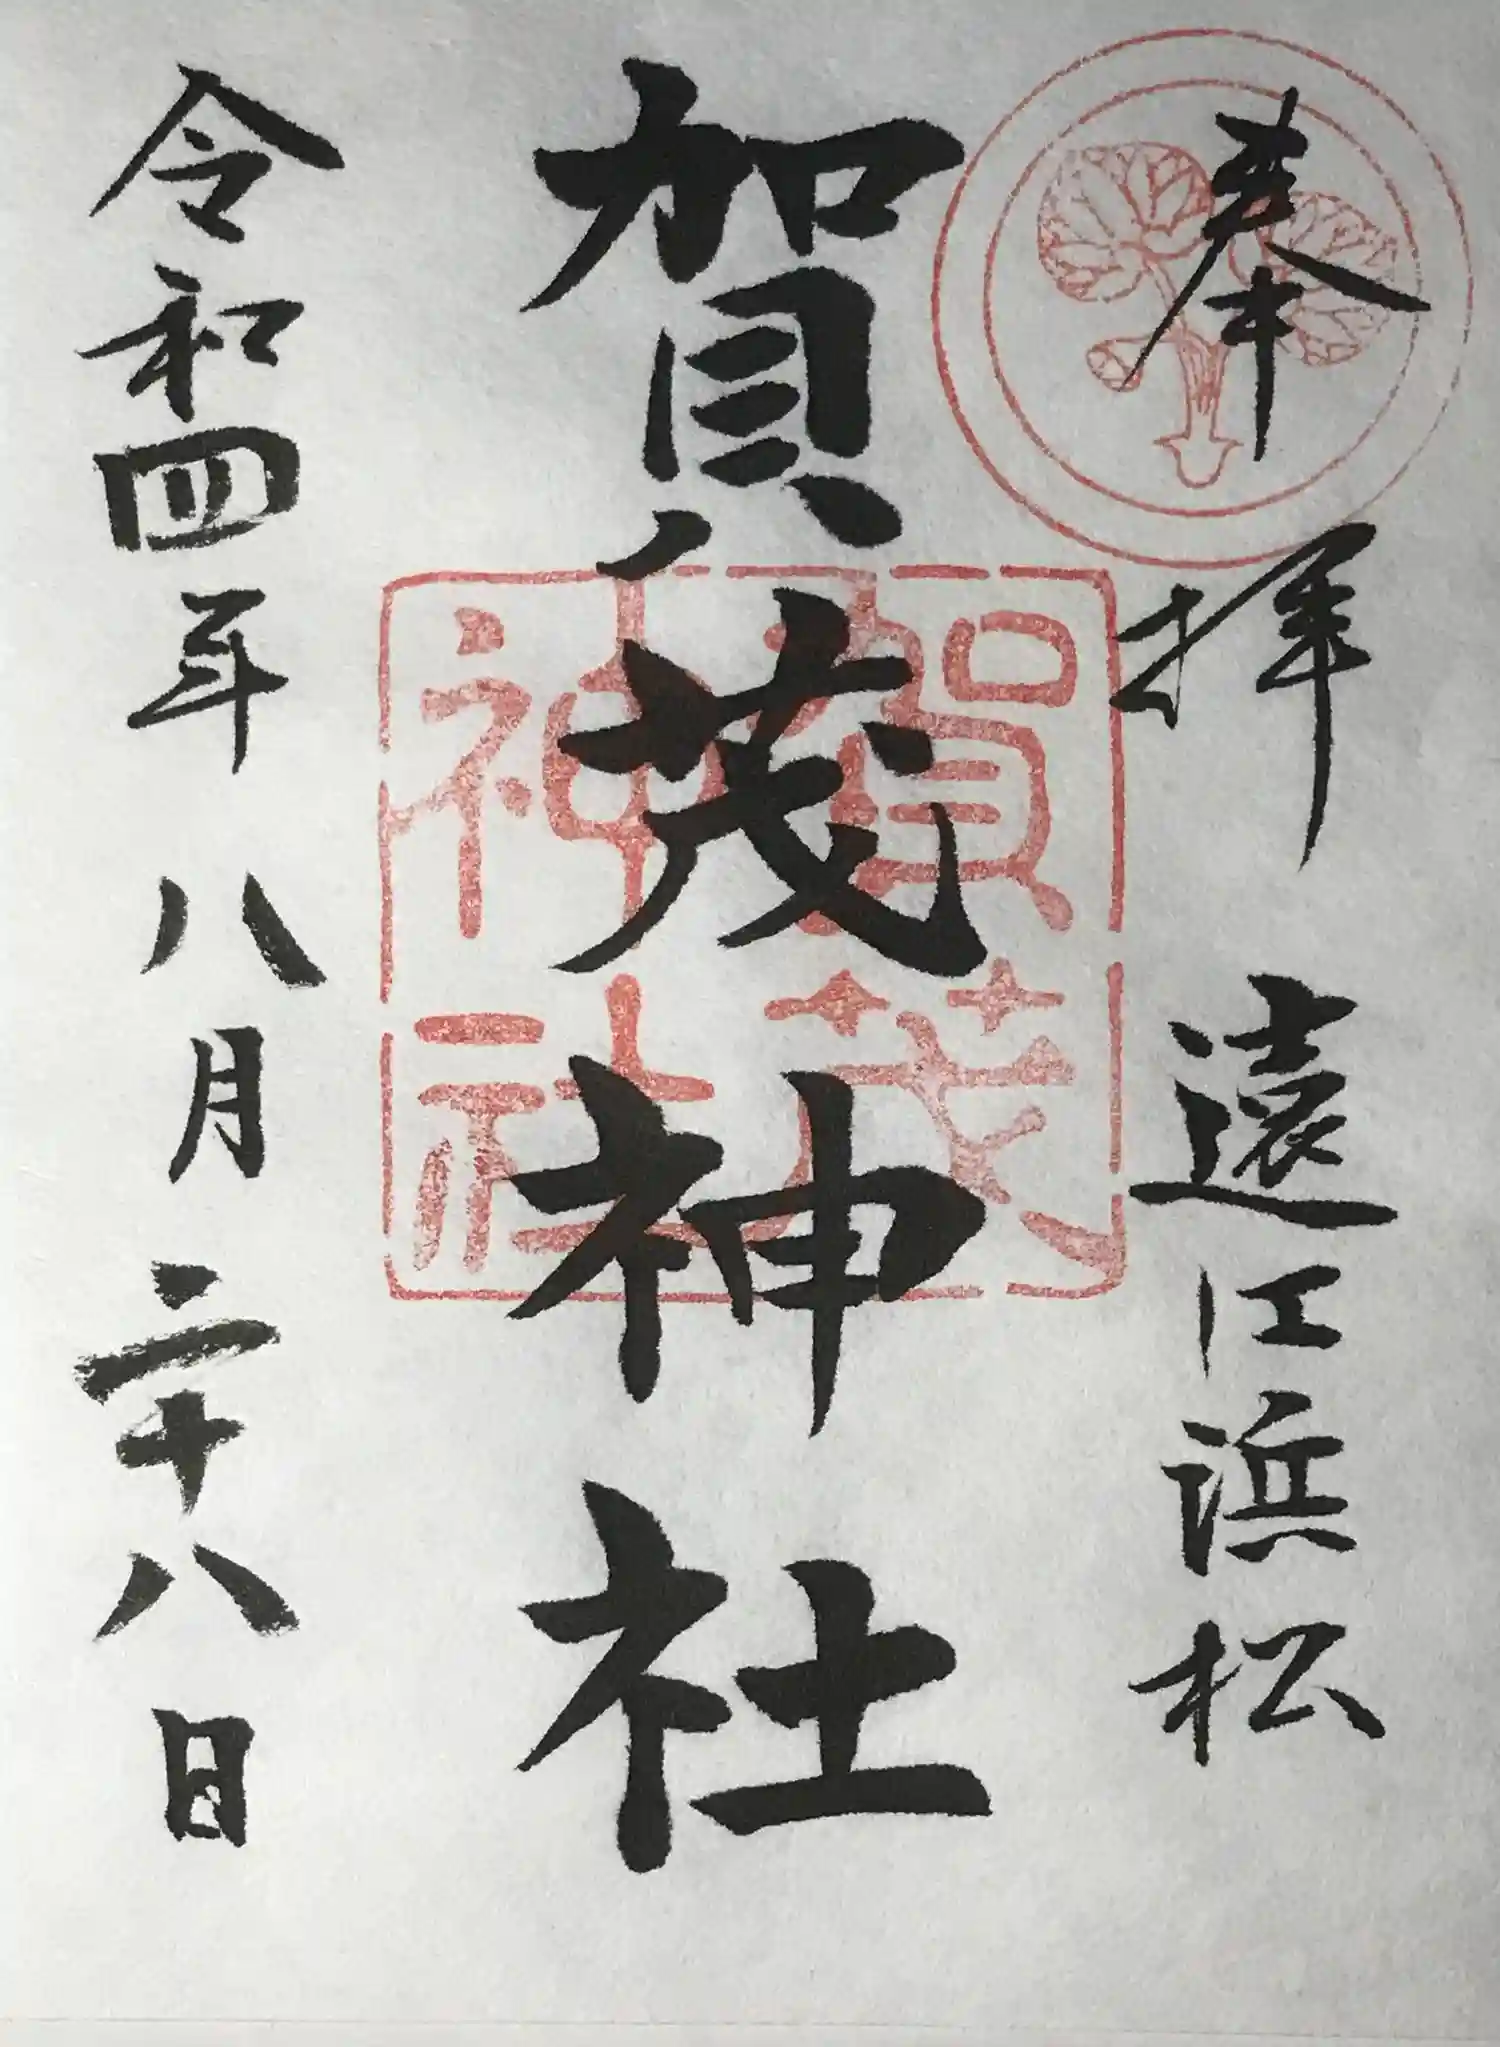 奉拝 遠江浜松
賀茂神社
賀茂神社
令和四年八月二十八日